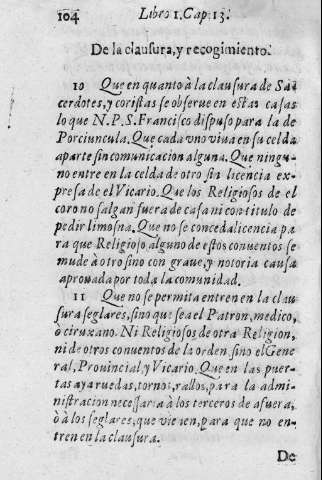 104
Libro 1. Cap. 13.
De la clausura, y recogimiento.
10 Que en quanto à la clausura de Sacerdotes, y coristas se observe en estas casas
lo que N. P. S. Francisco dispuso para la de
Porciuncula. Que cada vno viva en su celda
aparte sin comunicacion alguna. Que ninguno
entre en la celda de otro sin licencia expresa
de el Vicario. Que los Religiosos de el
coro no salgan fuera de casa ni con titulo de
pedir limosna. Que no se conceda licencia para
que Religioso alguno de estos conventos se
mude à otro sino con graue, y notoria causa
aprouada por toda la comunidad.
11 Que no se permita entren en la clausura
seglares, sino que sea el Patron, medico,
ò ciruxano. Ni Religiosos de otra Religion,
ni de otros conventos de la orden, sino el General,
Prouincial, y Vicario. Que en las puertas
aya ruedas, tornos, rallos, para la administracion
necessaria à los terceros de afuera,
ò à los seglares, que vienen, para que no entren
en la clausura.
De